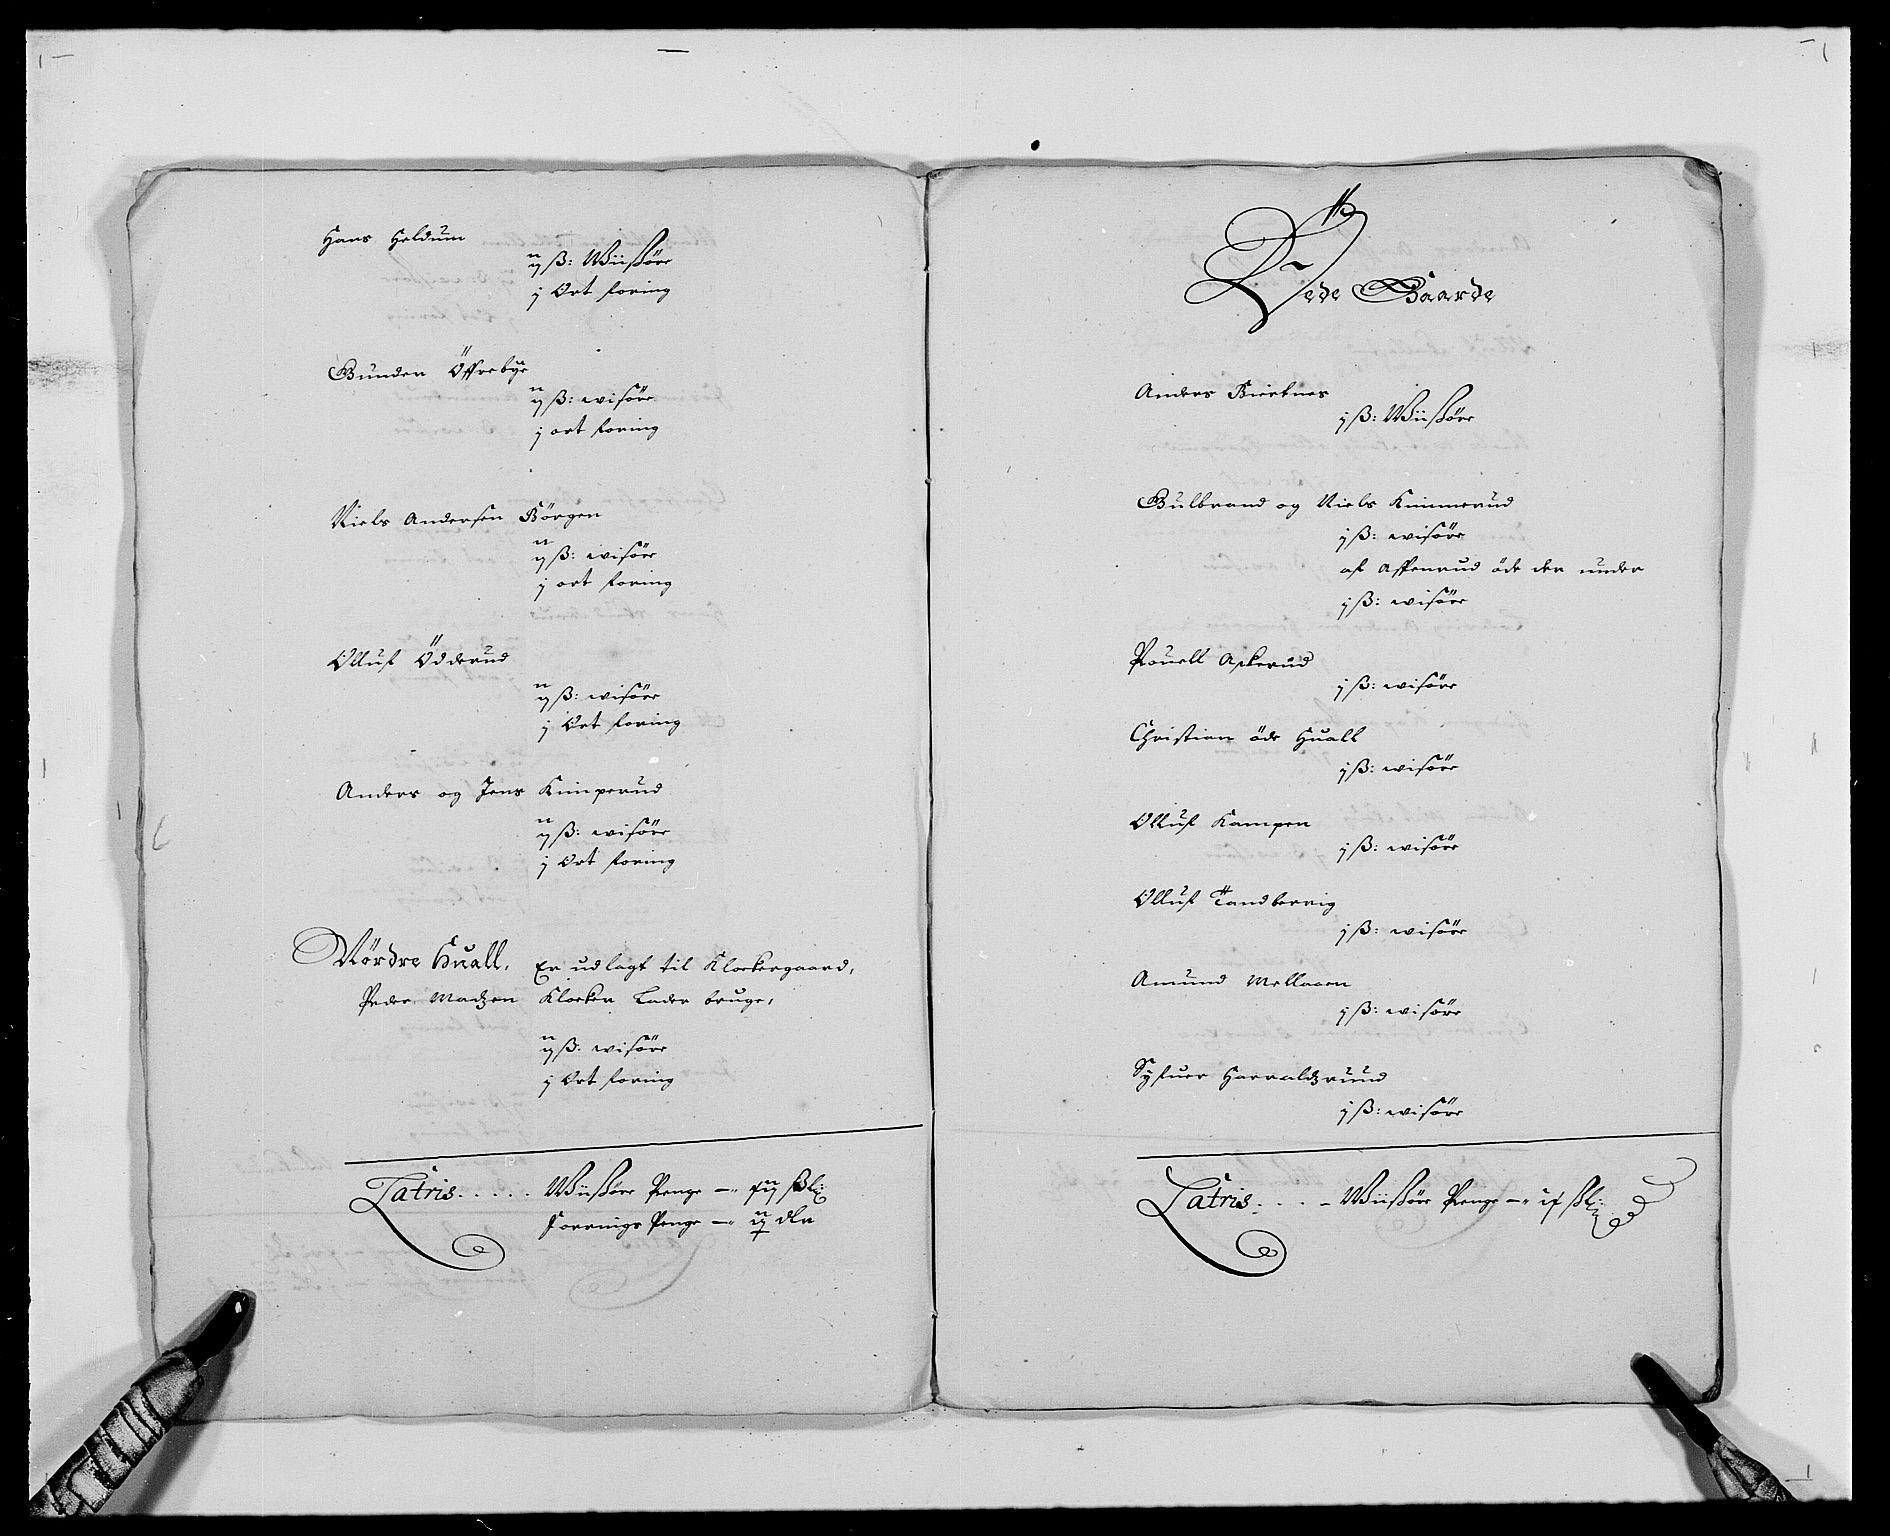 Hans Heldum
ij ß: Wiißöre
j Ort foring
Gunder Öffrebye
ij ß: wisöre
j ort foring
Niels Andersen Börgen
ij ß: wisöre
j ort foring
Olluf Ödderud
ij ß: wisöre
j Ort foring
Anders og Jens Kimperud
ij ß: wisöre
j Ort foring
Nördre Huall, Er udlagt til Klockergaard,
Peder Madzen Klocker Lader bruge,
ij ß: wisöre
j Ort foring
Latris. . . . . Wiißöre Penge —
Forrings Penge — dlr
Öede Gaarde
Anders Bierknes
j ß: Wiißöre
Gulbrand og Niels Kimmerud
j ß: wisöre
af Aspenrud öde der under
j ß: wisöre
Pouell Askerud
j ß: wisöre
Christian öde Huall
j ß: wisöre
Olluf Kampen
j ß: wisöre
Olluf Tandberrig
j ß: wisöre
Amund Mellaaen
j ß: wisöre
Syfuer Harraldzruud
j ß: wisöre
Latris. . . . Wiißöre Penge —